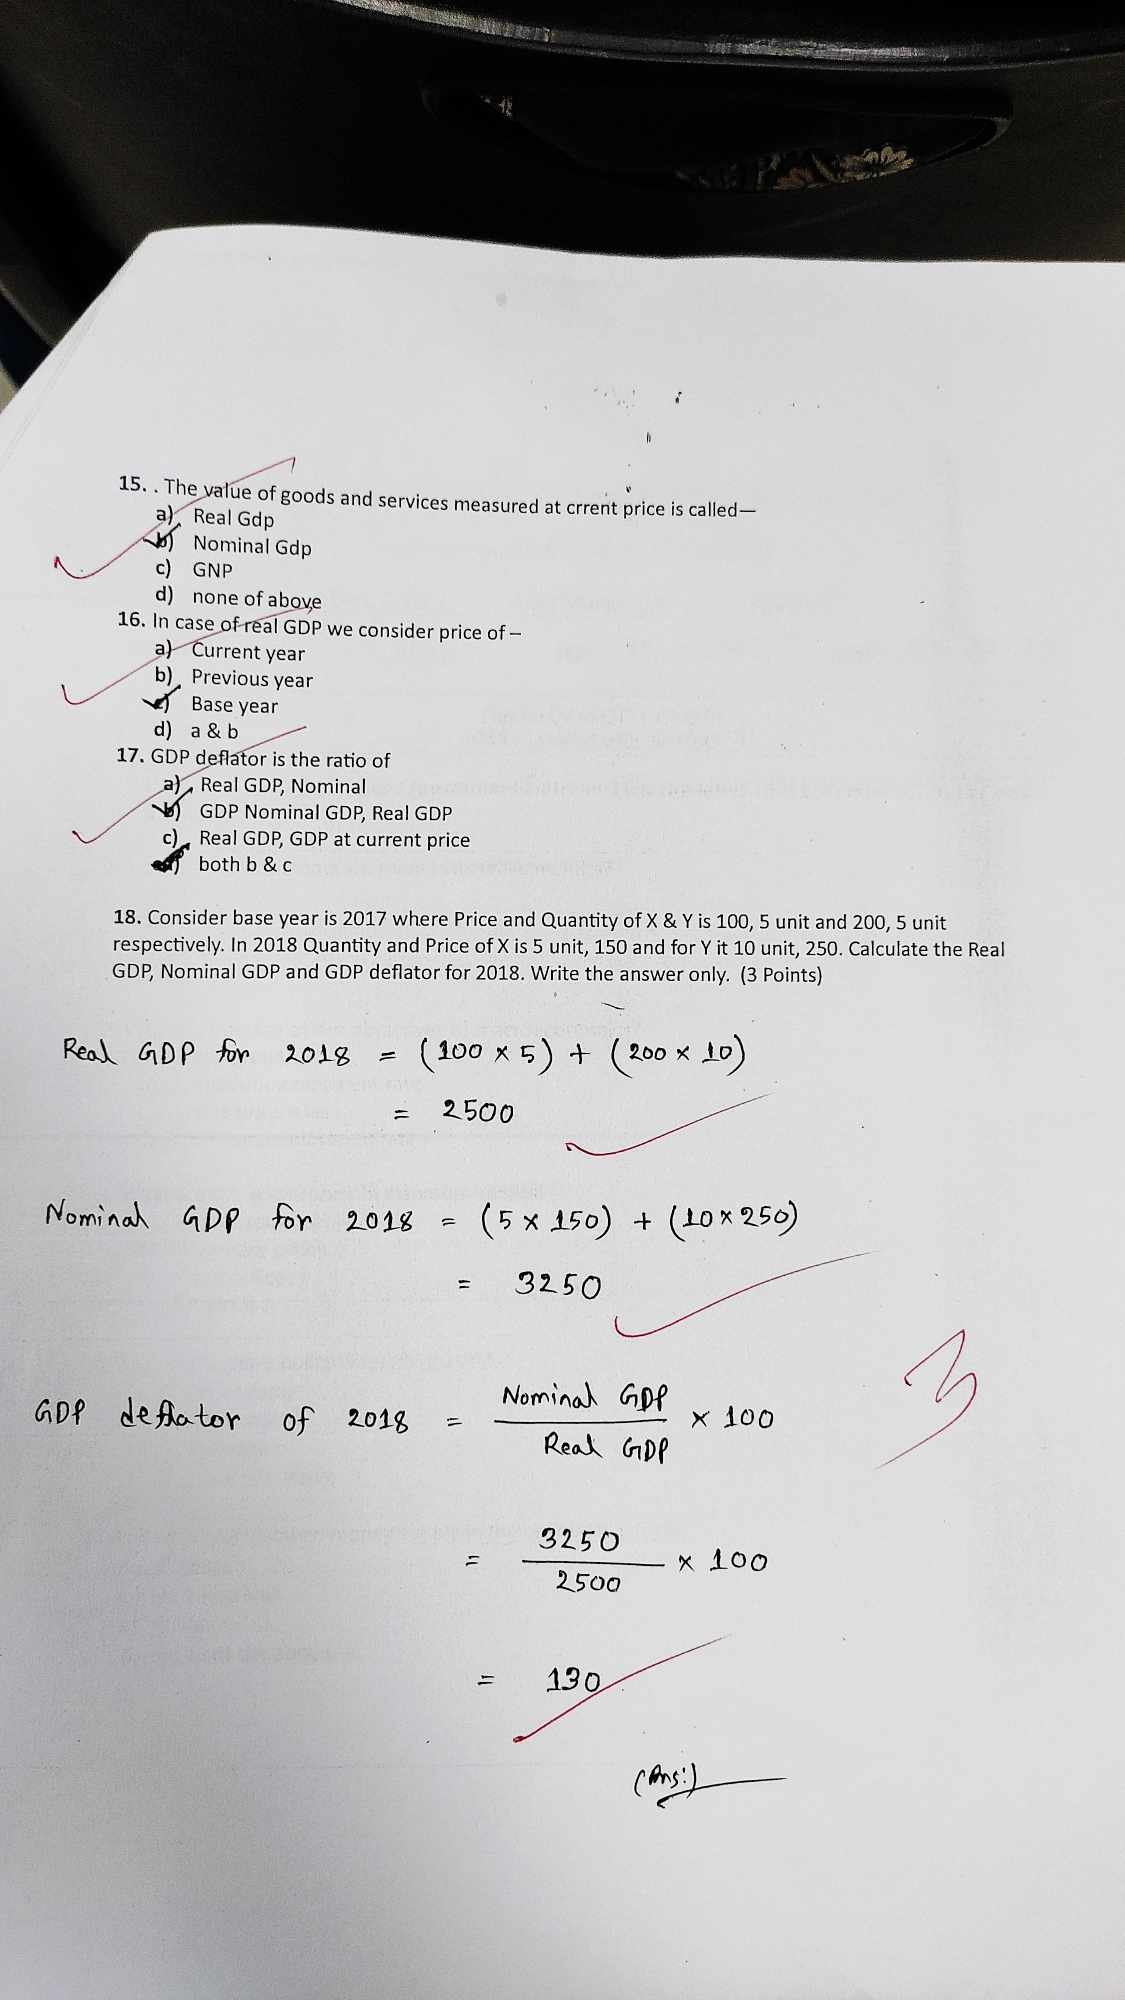 15. . The value of goods and services measured at crrent price is called—
a) Real Gdp
b) Nominal Gdp
c) GNP
d) none of above
16. In case of real GDP we consider price of –
a) Current year
b) Previous year
c) Base year
d) a & b
17. GDP deflator is the ratio of
a) Real GDP, Nominal
b) GDP Nominal GDP, Real GDP
c) Real GDP, GDP at current price
d) both b & c
18. Consider base year is 2017 where Price and Quantity of X & Y is 100, 5 unit and 200, 5 unit
respectively. In 2018 Quantity and Price of X is 5 unit, 150 and for Y it 10 unit, 250. Calculate the Real
GDP, Nominal GDP and GDP deflator for 2018. Write the answer only. (3 Points)
Real GDP for 2018 = (100 × 5) + (200 × 10)
= 2500
Nominal GDP for 2018 = (5 × 150) + (10 × 250)
= 3250
3
GDP deflator of 2018 = Nominal GDP / Real GDP × 100
= 3250 / 2500 × 100
= 130
(Ans:)